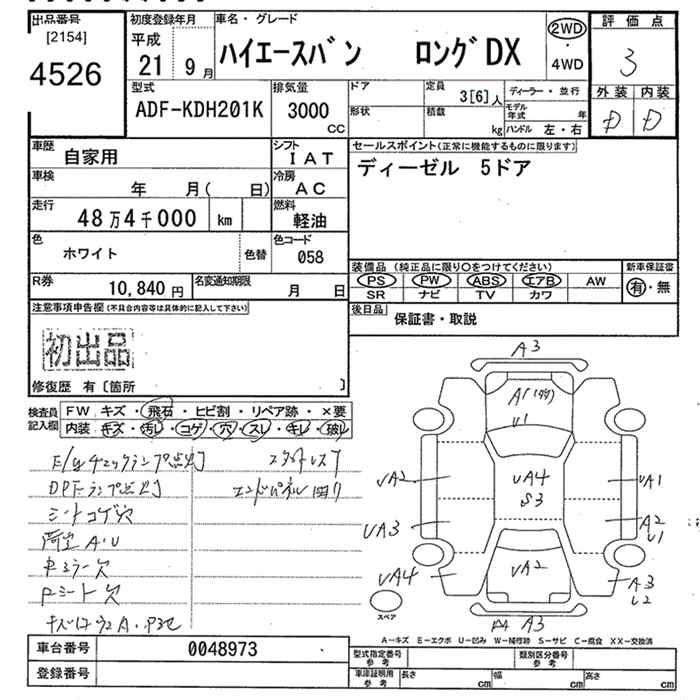 出品番号
[2154]
4526
初度登録年月
平成
21 9月
車名・グレード
ハイエースバン ロングDX
2WD
・
4WD
評価点
3
外装 内装
D D
型式
ADF-KDH201K
排気量
3000
CC
ドア
形状
定員
3[6]人
積載
kg
ディーラー・並行
モデル年式 年
ハンドル 左・右
車歴
自家用
シフト
IAT
セールスポイント(正常に機能するものに限ります)
ディーゼル 5ドア
車検
年 月( 日)
冷房
AC
走行
48万4千000 km
燃料
軽油
色
ホワイト
色替
色コード
058
装備品 (純正品に限り○をつけてください)
PS PW ABS エアB AW
SR ナビ TV カワ
新車保証書
有・無
R券
10,840円
名変通知期限
月 日
後日品
保証書・取説
注意事項申告欄(不具合内容等は具体的に記入して下さい)
初出品
修復歴 有〔箇所 〕
検査員記入欄
FW キズ・飛石・ヒビ割・リペア跡・×要
内装 キズ・汚レ・コゲ・穴・スレ・キレ・破レ
E/gチェックランプ点灯
DPFランプ点灯
シートコゲ穴
荷室A.U
スタッドレス
エンドパネル凹
A3
A1
U1
UA4
S3
UA2
UA2
UA3
UA4
UA1
A2
U1
A3
U2
A3
スペア
A−キズ E−エクボ U−凹み W−補修跡 S−サビ C−腐食 XX−交換済
車台番号
0048973
登録番号
型式指定番号
参考
類別区分番号
参考
車庫証明用
参考
長さ cm 幅 cm 高さ cm